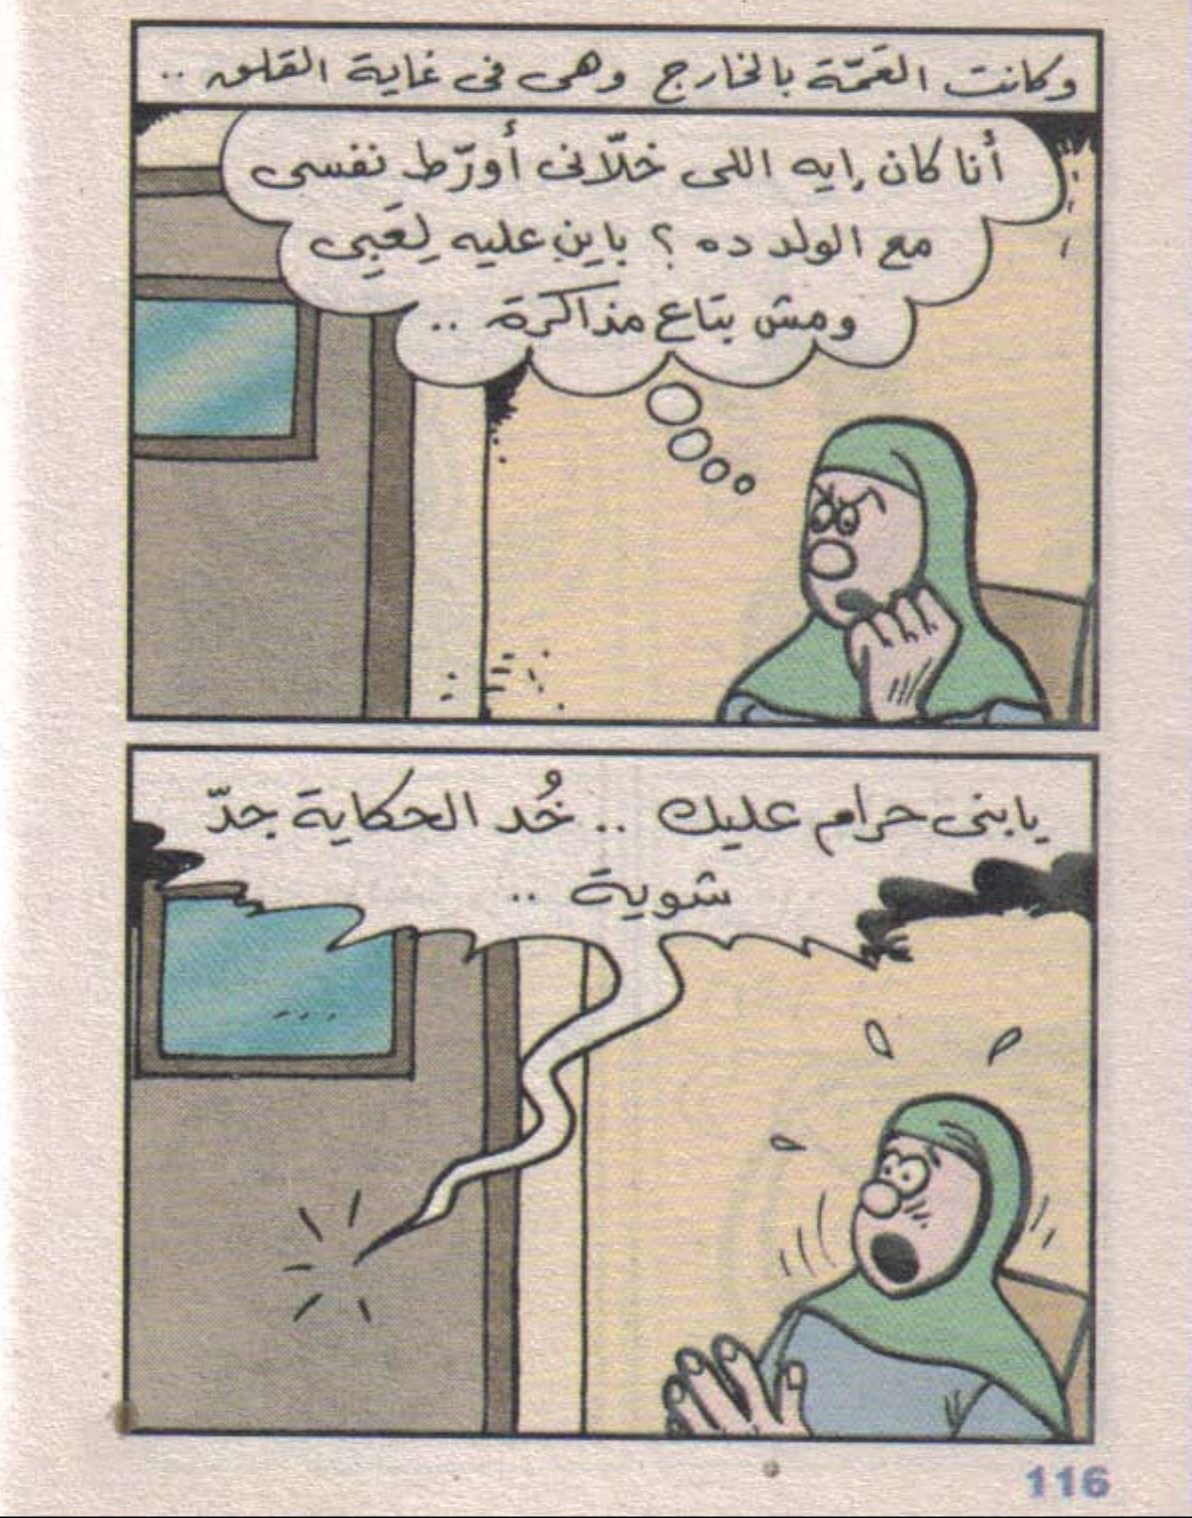 وكانت العَمّة بالخارج وهى فى غاية القلق ..
أنا كان إيه اللى خلّانى أورّط نفسى
مع الولد ده ؟ باين عليه لِعَبِى
ومش بتاع مذاكرة ..
يا بنى حرام عليك .. خُد الحكاية جدّ
شوية ..
116